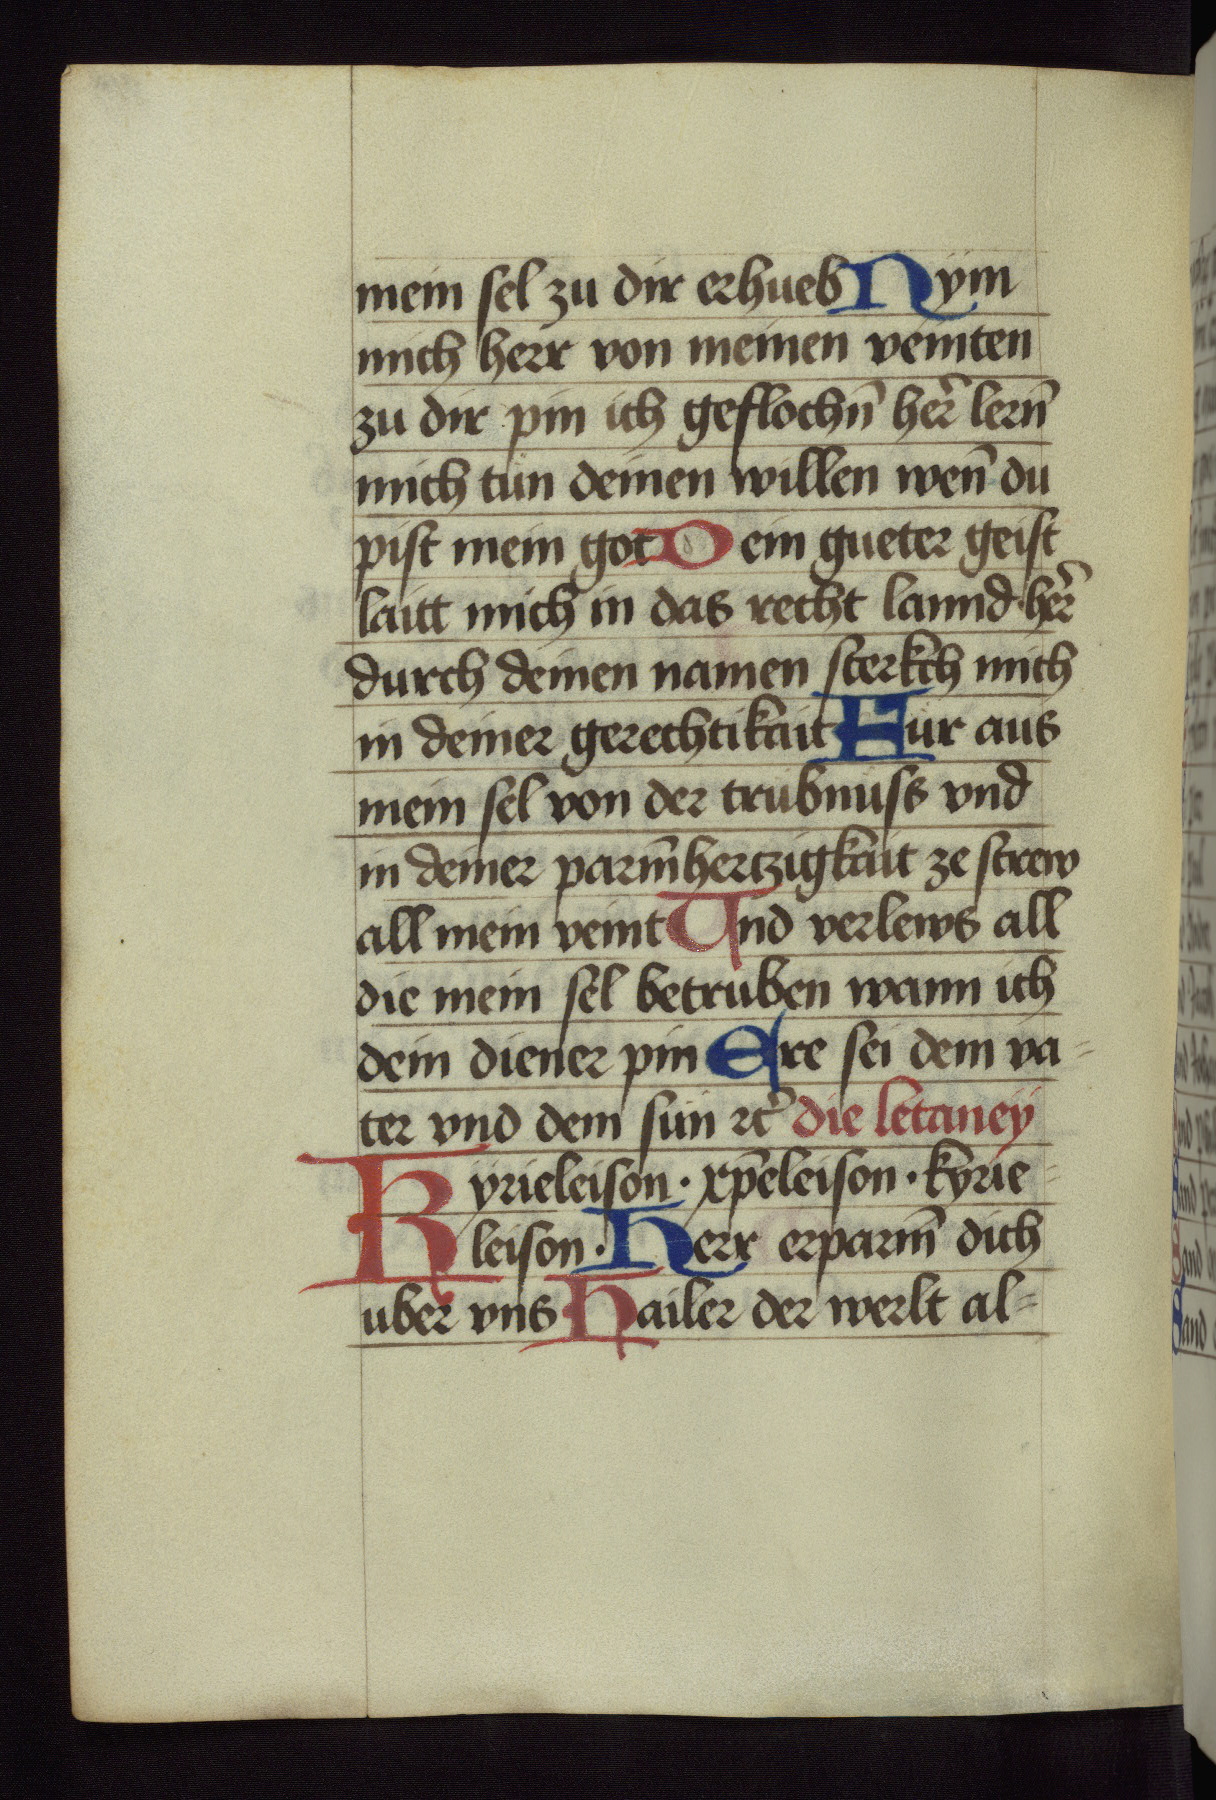 mein sel zu dir erhueb Nym
mich herr von meinen veinten
zu dir pin ich geflochn̄ her̄ lern̄
mich tün deinen willen wen̄ du
pist mein got Dein gueter geist
laitt mich in das recht lannd her̄
durch deinen namen sterkch mich
in deiner gerechtikait Für aus
mein sel von der trübnüss vnd
in deiner parm̄hertzigkait ze strew
all mein veint Und verlews all
die mein sel betruben wann ich
dein diener pin Ere sei dem va⸗
ter vnd dem sün ꝛc̄ die letaney
Kyrieleison · xp̄eleison · kyrie⸗
leison · Herr erparm̄ dich
uber vns Hailer der werlt al⸗